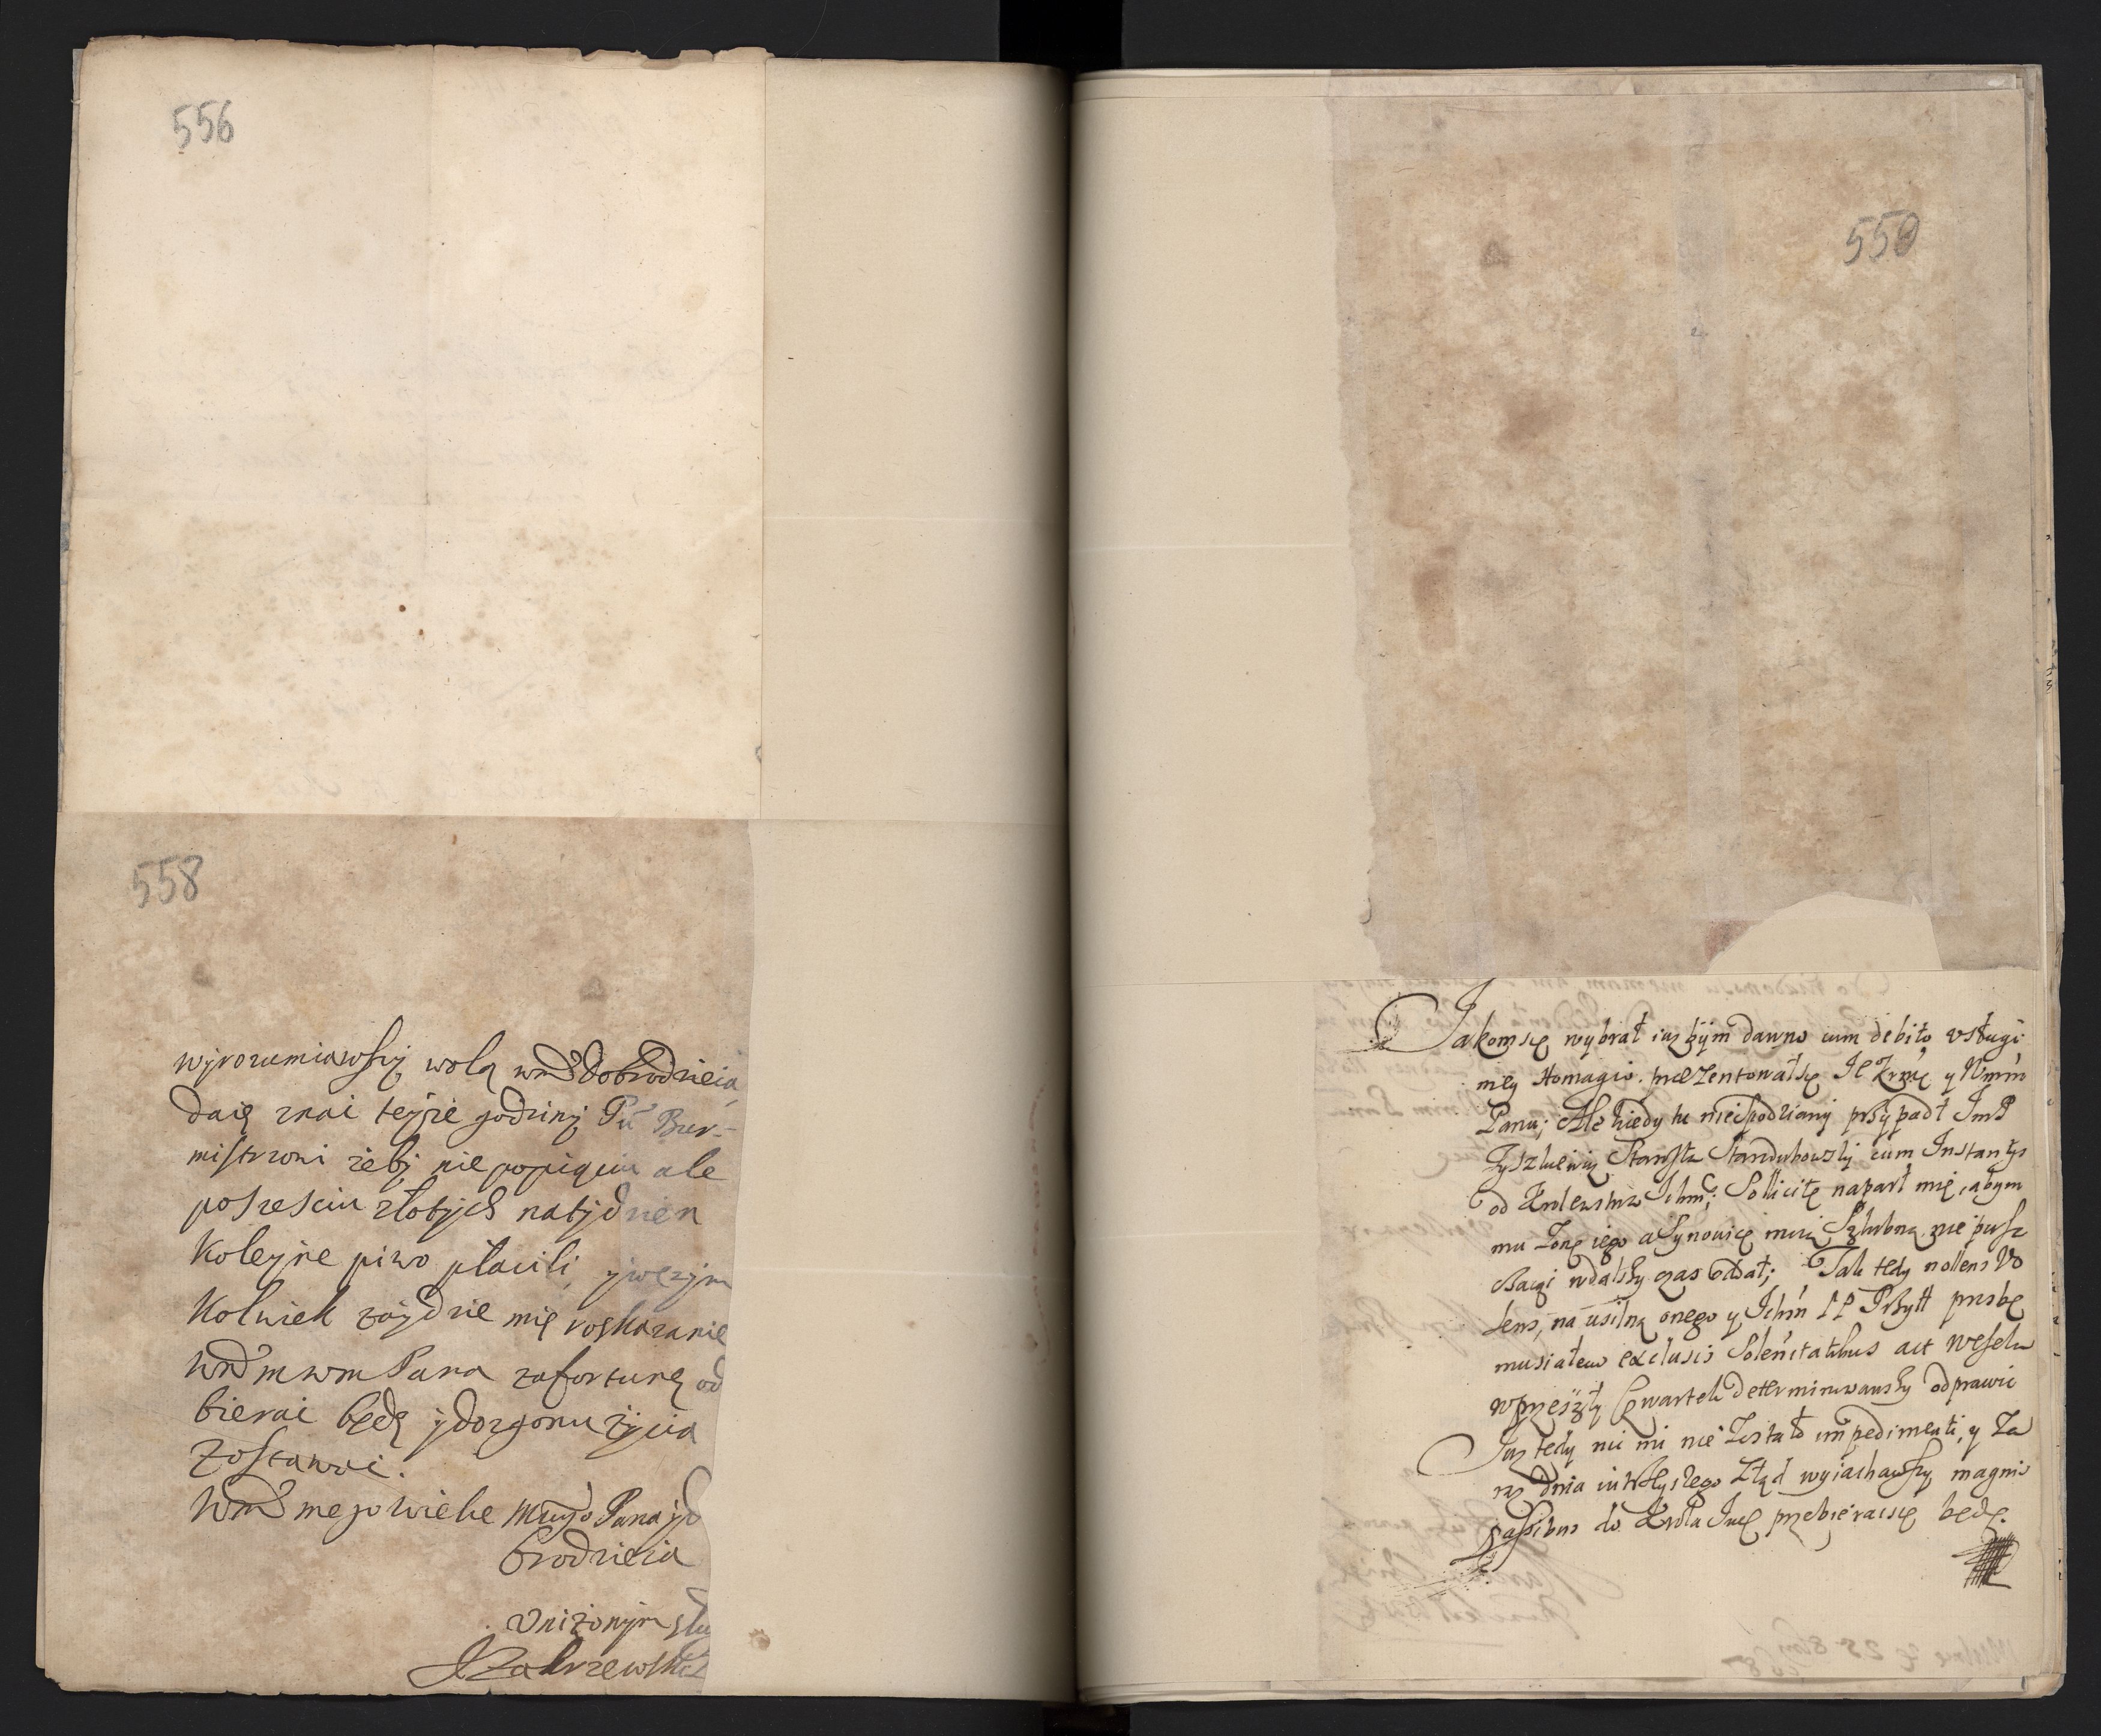 556
558
wyrozumiawszy wolą wmć Dobrodzieia,
daię znai teyże godziny Pu Bur-
mistrzowi żeby nie popięciu ale
poszesciu złotych natydzien
Koleyne piwo płacili, ywczym
Kolwiek zaydzie mię roskazanie
wmć m wm Pana zafortunę od
bierai będę ydozgonu życia
zostawai.
Wmć mego wielce Mwgo Pana yd
brodzieia
Vniżonym słu
JZakrzewski
559
Jakomsię wybrał iuz bÿm dawno cum debito vsługi
mey Homagio prezentowałsię Je Krmci y Wmm
Panu; Ale kiedy tu niespodziany przypadł JmP
Tyszkiewicz Starosta Standubowsky cum Instantys
od Krolewstwa Ichm; Sollicite naparł mię, abym
mu Zonę iego a Synowicę moią Szlubną nie pusz
czaiąc wdalszy czas oddał; Tak tedy nollens Vo
lens, na usilną onego y Ichm PP Przyłł prosbę
musiałem exclusis Solennitatibus act wesela
wprzeszły Czwartek determinowanszy odprawic
Juz tedy nic mi nie Zostało impedimenti, y Za
raz dnia iutrzeyszego Ztąd wyiachawszy magnis
passibus do Krola Jmci przebieraćsię będę.